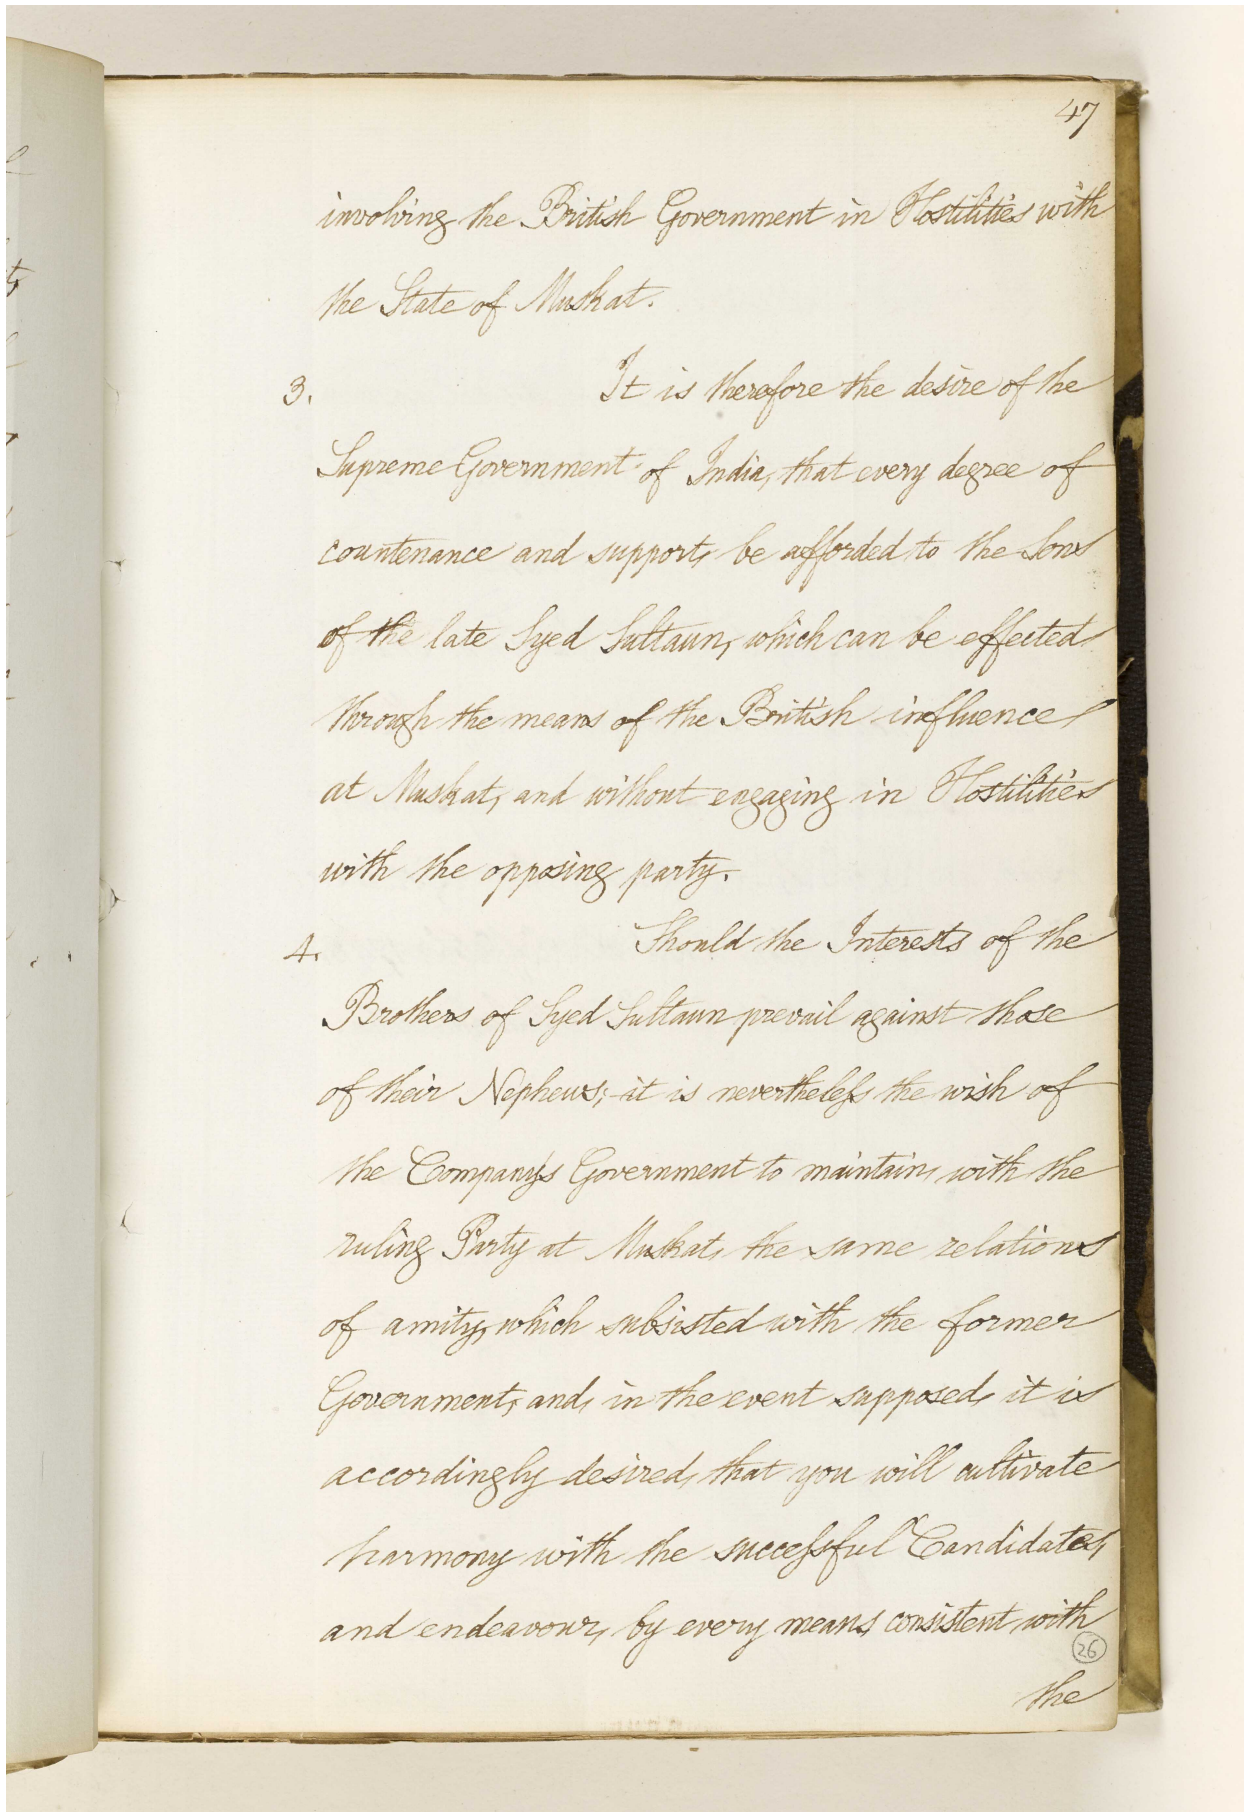 47
involving the British Government in Hostilities with
the State of Muskat.
3. It is therefore the desire of the
Supreme Government of India, that every degree of
countenance and support, be afforded to the Sons
of the late Syed Sultaun, which can be effected
through the means of the British influence
at Muskat, and without engaging in Hostilities
with the opposing party.
4. Should the Interests of the
Brothers of Syed Sultaun prevail against those
of their Nephews; it is nevertheless the wish of
the Company's Government to maintain, with the
ruling Party at Muskat, the same relations
of amity, which subsisted with the former
Government, and, in the event supposed, it is
accordingly desired, that you will cultivate
harmony with the successful Candidates,
and endeavour, by every means, consistent with
26
the